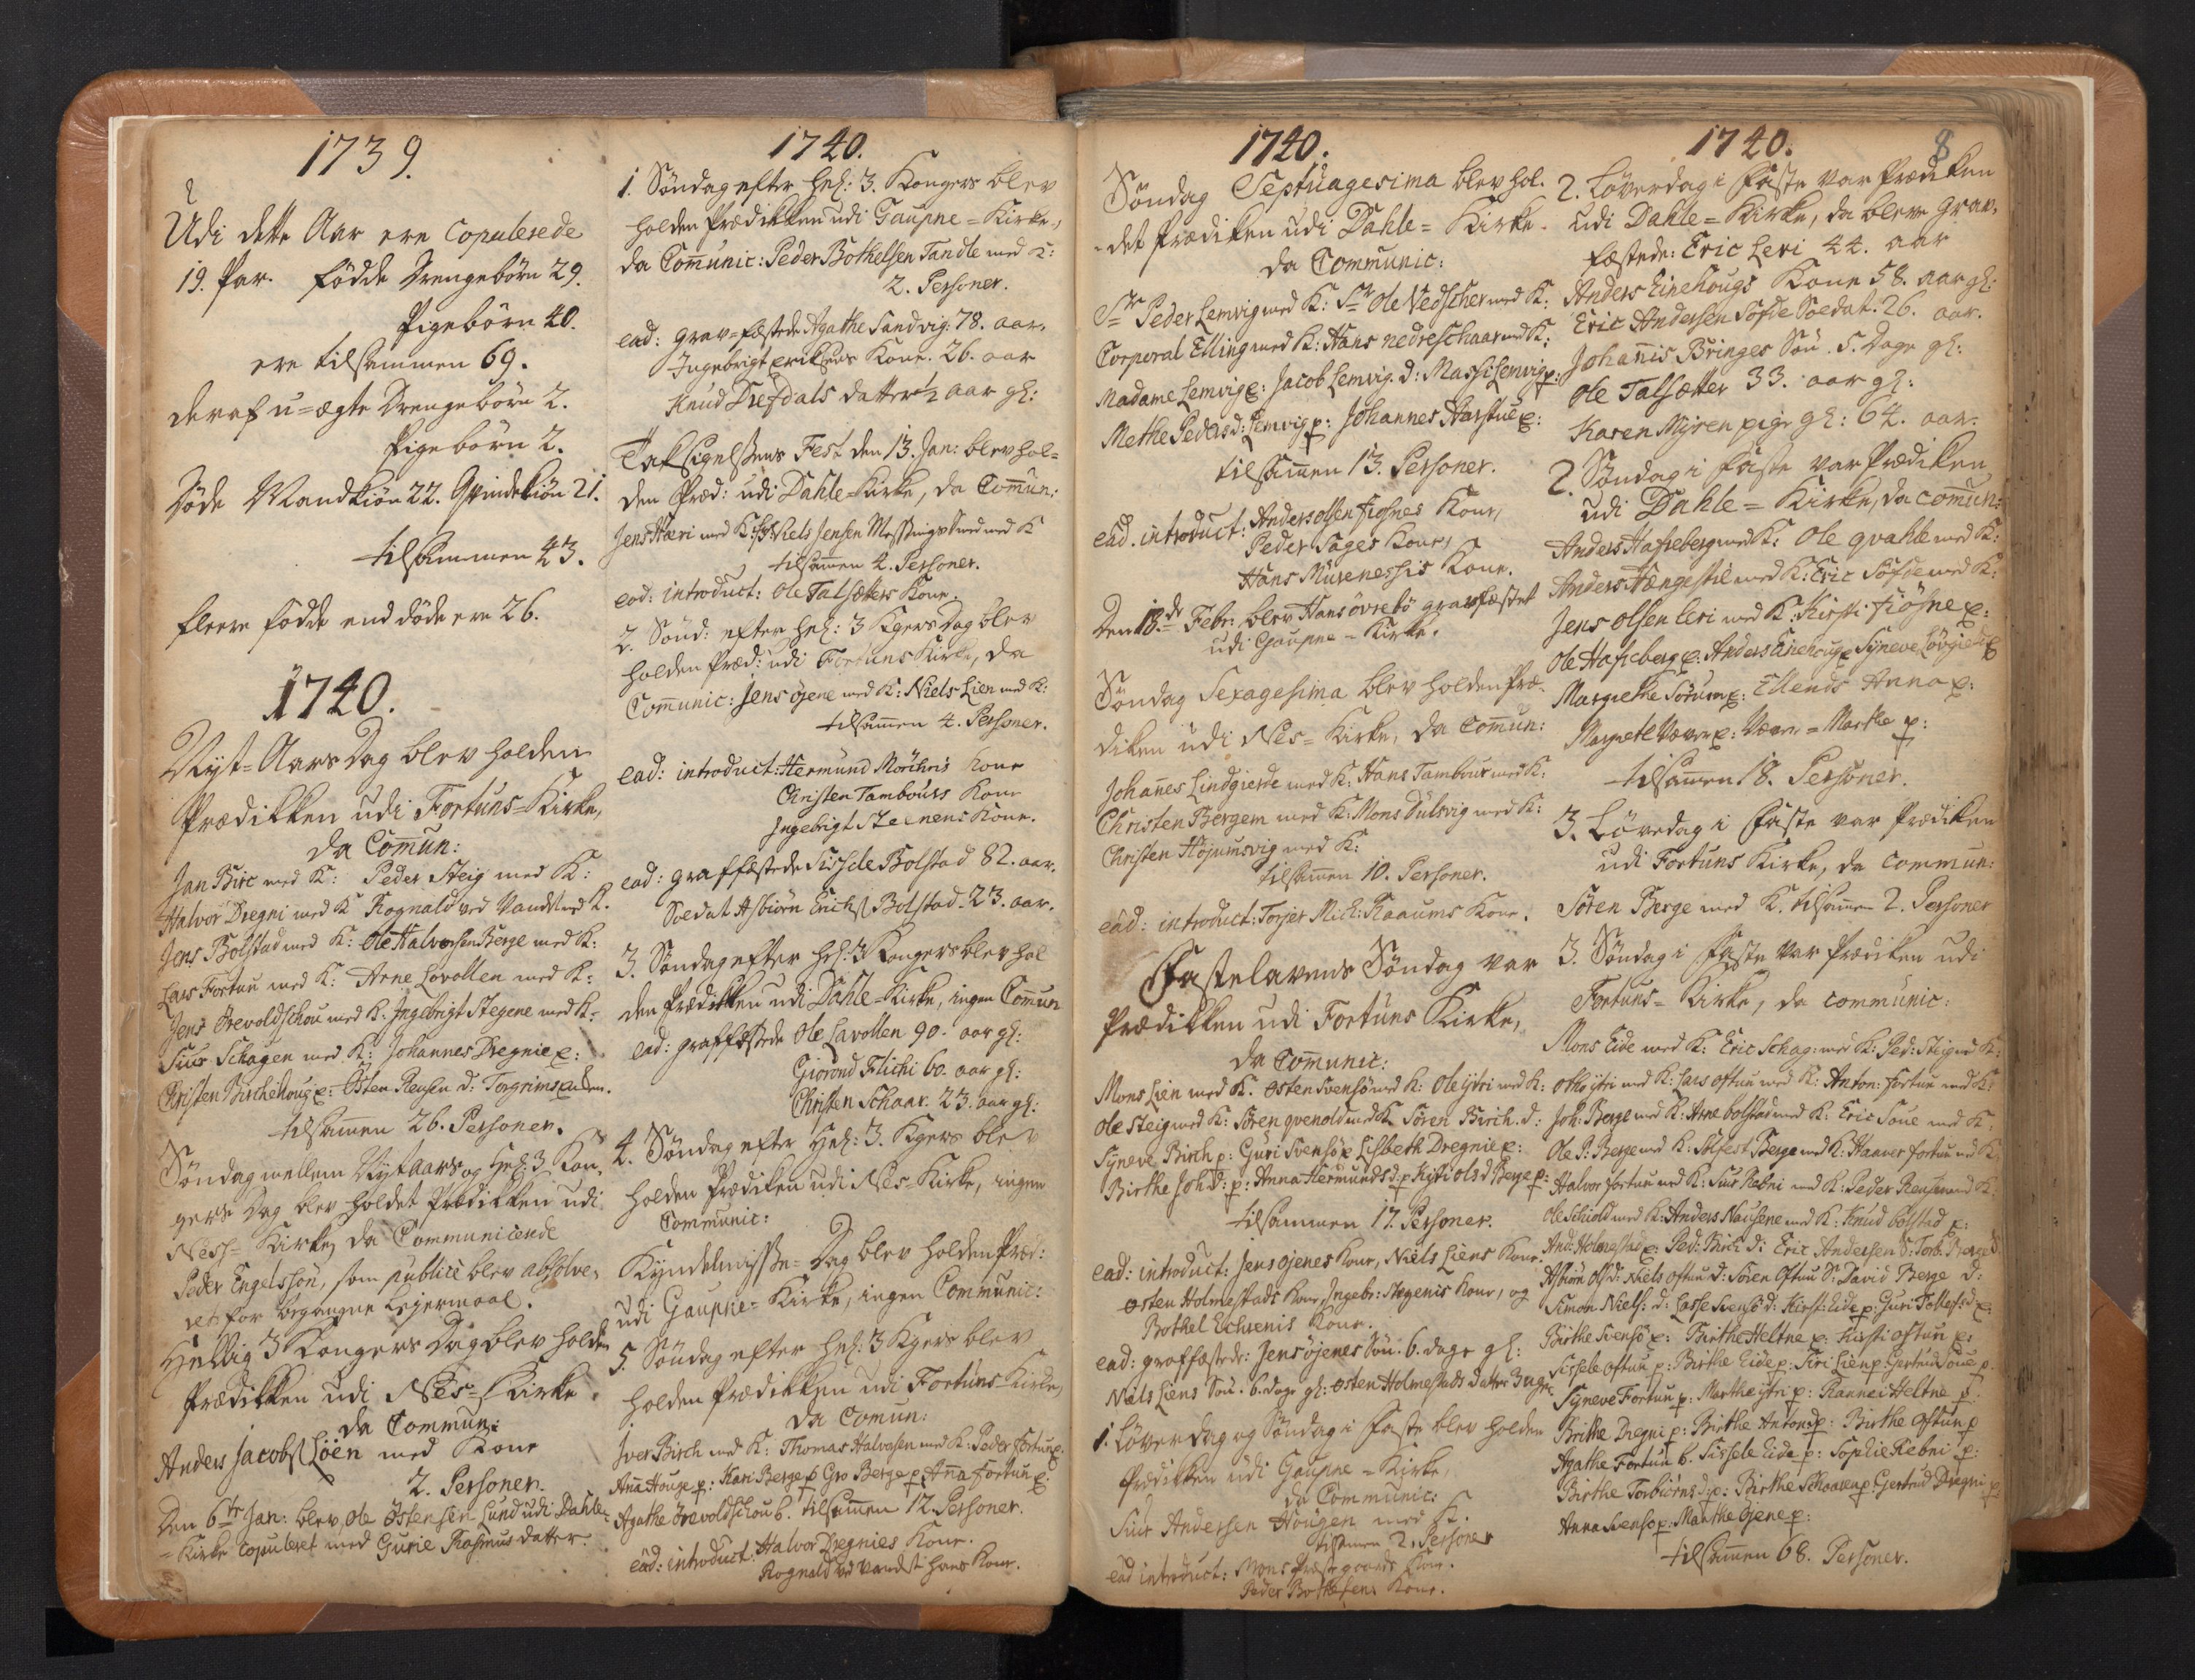 1739.
Udi dette Aar ere Copulerede
19. Par. fødde Drengebørn 29.
Pigebørn 40.
ere tilsammen 69.
deraf u=ægte Drengebørn 2.
Pigebørn 2.
Døde Mandkiön 22. Qvindekiön 21.
tilsammen 43.
fleere fødde end døde ere 26.
1740.
Nyt=Aars Dag blev holden
Prædikken udi Fortuns=Kirke,
da Com̄un:
Jan Birc med K: Peder Steig med K:
Halvor Dregni med K Rognald ved Vandet med K.
Jens Bolstad med K: Ole Halvorsen Berge med K:
Lars Fortun med K: Arne Lovollen med K:
Jens Ørevoldschou med K. Ingebrigt Stegene med K:
Siur Schagen med K: Johannes Dregnie
Christen Birchehoug
tilsam̄en 26. Personer.
Søndag mellem Nytaars og Hel: 3 Kon,
gers Dag blev holdet Prædikken udi
Kirke, da Communicerede
Peder Engelssøn, som publicè blev absolve,
ret for begangne Lejermaal.
Hellig 3 Kongers Dag blev holden
Prædikken udi Nes=Kirke
da Commun:
Anders Jacobs Löen med Kone
2. Personer.
Den 6te Jan: blev Ole Østensen Lund udi Dahle
=Kirke Copuleret med Gurie Rasmus datter.
1740.
1. Søndag efter Hel: 3. Kongers blev
holden Prædikken udi Gaupne=Kirke,
da Com̄unic: Peder Bothelsen Tandle med K:
2. Personer.
ead: grav=fæstede Agathe Sandvig: 78. aar.
Ingebrigt Eriksens Kone. 26. aar
Knud Drefdals datter ½ aar gl:
Taksigelsens Fest den 13. Jan: blev hol=
den Præd: udi Dahle=Kirke, da Com̄un:
Jens Hæri med K: Niels Jensen med K
tilsam̄en 4. Personer.
eod: introduct: Ole Talsætters Kone.
2. Sönd: efter Hel: 3 Kgers Dag blev
holden Præd: udi Fortuns Kirke, da
Com̄unic: Jens öjene med K: Niels Lien med K:
tilsam̄en 4. Personer.
ead: introduct: Hermund Kone
Christen Tambours Kone
Ingebrigt Kone.
ead: graffæstede Sissele Bolstad 82. aar.
Soldat Asbiörn Bolstad. 23. aar.
3. Søndag efter Hel: 3 Kongers blev hol
den Prædikken udi Dahle=Kirke, ingen Com̄un
ead: graffæstede Ole Lavollen 90. aar gl:
Giörond Flichi 60. aar gl:
Christen Schaar. 23. aar gl:
4. Søndag efter Hel: 3. Kgers blev
holden Prædiken udi Nes=Kirke, ingen
Communic:
Kyndelmisse=Dag blev holden Præd:
udi Gaupne=Kirke, ingen Communic:
5. Søndag efter Hel: 3 Kgers blev
holden Prædikken udi Fortuns=Kirke,
da Comun:
Iver Birch med K: Thomas Halvorsen med K: Peder Fortun
Anna Houge p: Kari Berge p Gro Berge p Anna Fortun
Agathe Ørevoldschou 6. tilsam̄en 12. Personer.
ead: introduct: Halvor Dregnies Kone.
Rognald ved Vandet hans Kone.
1740.
Søndag Septuagesima blev hol.
det Prædiken udi Dahle=Kirke.
da Communic:
Sr Peder Lemvig med K: Sr Ole Vedscher med K:
Corporal Elling med K: Hans nedreschaar med K:
Madame Lemvig Jacob Lemvig. d: Lemvig p:
Methe Peders d: Lemvig p: Johannes
tilsam̄en 13. Personer.
ead. introduct: Anders olsen Fiösnes Kone,
Peder Sages Kone,
Hans Kone.
Den 13de Febr: blev Hans övrebö gravfæstet
udi Gaupne=Kirke.
Søndag Sexagesima blev holden Præ-
diken udi Nes=Kirke, da Com̄un:
Johan̄es Lindgierde med K: Hans Tambour med K:
Christen Bergem med K: Mons Dulsvig med K:
Christen Høyumsvig med K:
tilsam̄en 10. Personer.
ead: introduct: Torjer Mich: Raaums Kone.
Fastelavens Søndag var
Prædikken udi Fortuns Kirke,
da Com̄unic:
Mons Lien med K. Østen Svensö med K: Ole ytri med K:
Ole Steig med K: Sören qvenold med K Sören Birch. d:
Syneve Birch p: Guri Svensö p Lisbeth Dregnie
Birthe Joh: d: p: Anna Hermunds d: p Kisti ols d Berge p:
tilsammen 17. Personer.
ead: introduct: Jens ojenes Kone, Niels Liens Kone
Østen Holmestads Kone, Ingebr: Stegenis Kone, og
Bothel Kone.
ead: graffæstede: Jens öjenes Sön. 6. dage gl:
Niels Liens Sön. 6. dage gl: Østen Holmestads datter 3 uger
1. Løverdag og Søndag i Faste blev holden
Prædikken udi Gaupne=Kirke,
da Communic:
Siur Andersen Hougen med K.
tilsammen 2. Personer
ead introduct: Mons Kone.
Peder Bothelsens Kone.
1740.
8
2. Løverdag i Faste var Prædiken
udi Dahle=Kirke, da bleve grav,
fæstede: Eric Leri 44. aar
Anders Einehougs Kone 58. aar gl:
Eric Andersen Söfde Soldat. 26. aar.
Johan̄is Bringes Sön. 5. Dage gl:
Ole Talsætter 33. aar gl:
Karen Myren pige gl: 64. aar.
2. Søndag i Faste var Prædiken
udi Dahle=Kirke, da com̄un:
Anders Hafseberg med K: Ole qvahle med K:
Anders med K: Eric Söfde med K:
Jens olsen Leri med K: Kirsti fiösne
Ole Hafseberg Anders Einehoug Syneve
Margrethe Ellends Anna
Martha p:
tilsam̄en 18. Personer.
3. Løverdag i Faste var Prædiken
udi Fortuns Kirke, da commun:
Sören Berge med K. tilsam̄en 2. Personer
3. Søndag i Faste var Prædiken udi
Fortuns=Kirke, da communic:
Mons Eide med K: Eric Schag: med K: Ped: Steig med K:
ytri med K: Lars oftun med K: Anton: fortun med K:
Joh: Berge med K: Arne bolstad med K: Eric Soue med K:
Ole P: Berge med K: Berge med K: fortun med K
Halvor fortun med K: Siur Rebni med K: Peder med K
Ole Schiold med K: Anders Nausene med K: Knud bolstad
And: Holmestad Ped: Birch d: Eric Andersen S: Torb: Berge
Asbiörn Niels oftun d: Sören Oftun David Berge d:
Simon Niels: d: Lasse Svensö d: Kirst: Eide p: Guri
Birthe Svensö Birthe Heltne p: Kirsti oftun p:
Sissele oftun p: Birthe Eide p: Siri Lien p Gertrud Soue p.
Syneve Fortun p: Marthe ytri p: Rannei Heltne p
Brithe Dregni p: Birthe Anton d p: Birthe Oftun p
Agathe Fortun 6. Sissele Eide p: Sophie Rebni p:
Birthe Torbiörns d p: Birthe p Gertrud Dregni p
Anna Svensö p: Marthe Ojene p:
tilsam̄en 68. Personer.